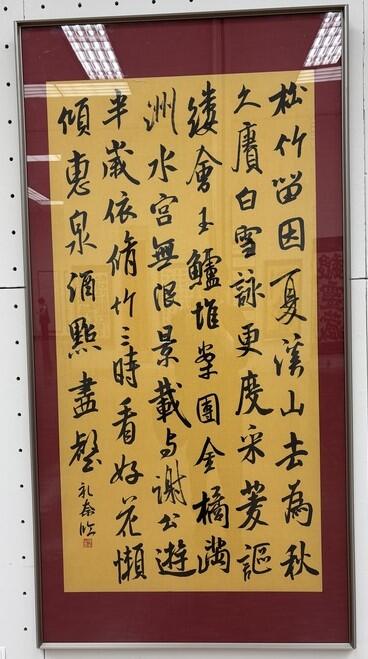 松竹留因夏溪山去為秋
久賡白雪詠更度采菱謳
縷會玉鱸堆案團金橘滿
洲水宮無限景載与謝公遊
半歲依脩竹三時看好花懶
傾惠泉酒點盡壑
礼泰臨